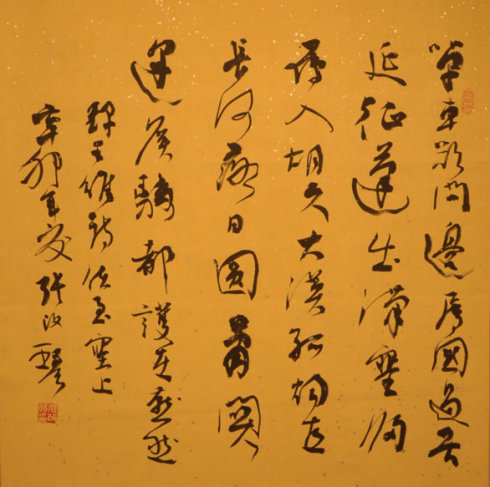 單車欲問邊屬國過居
延征蓬出漢塞歸
雁入胡天大漠孤煙直
長河落日圓蕭關
逢候騎都護在燕然
錄王維詩使至塞上
辛卯年夏張汝